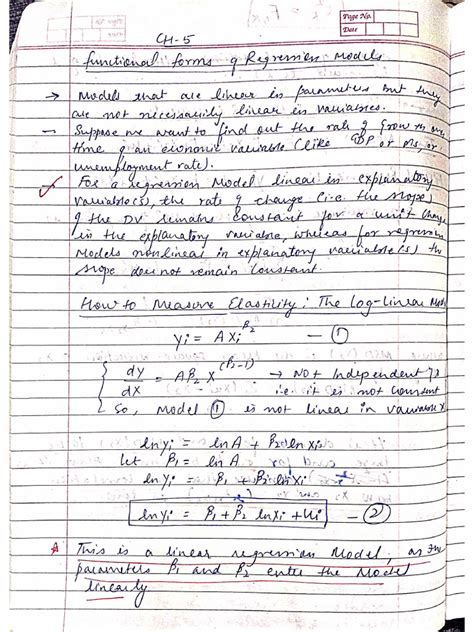 Page No.
Date
CH-5
functional forms of Regression Models
→ Models that are linear in parameters but they
are not necessarily linear in variables.
– Suppose we want to find out the rate of growth over
time of an economic variable (like GDP or Ms, or
unemployment rate).
For a regression Model linear in explanatory
variable(s), the rate of change (i.e. the slope)
of the DV remains constant for a unit change
in the explanatory variable, whereas for regression
Models nonlinear in explanatory variable(s) the
slope does not remain constant.
How to Measure Elastility: The log-linear Mod
Yi = AXi^β2 — ①
dy/dX = Aβ2 X^(β2-1) → Not Independent of X
i.e. it is not constant
So, Model ① is not linear in variable X
lnYi = lnA + β2 lnXi
Let β1 = lnA
lnYi = β1 + β2 lnXi
lnYi = β1 + β2 lnXi + ui — ②
This is a linear regression Model, as the
parameters β1 and β2 enter the Model
linearly